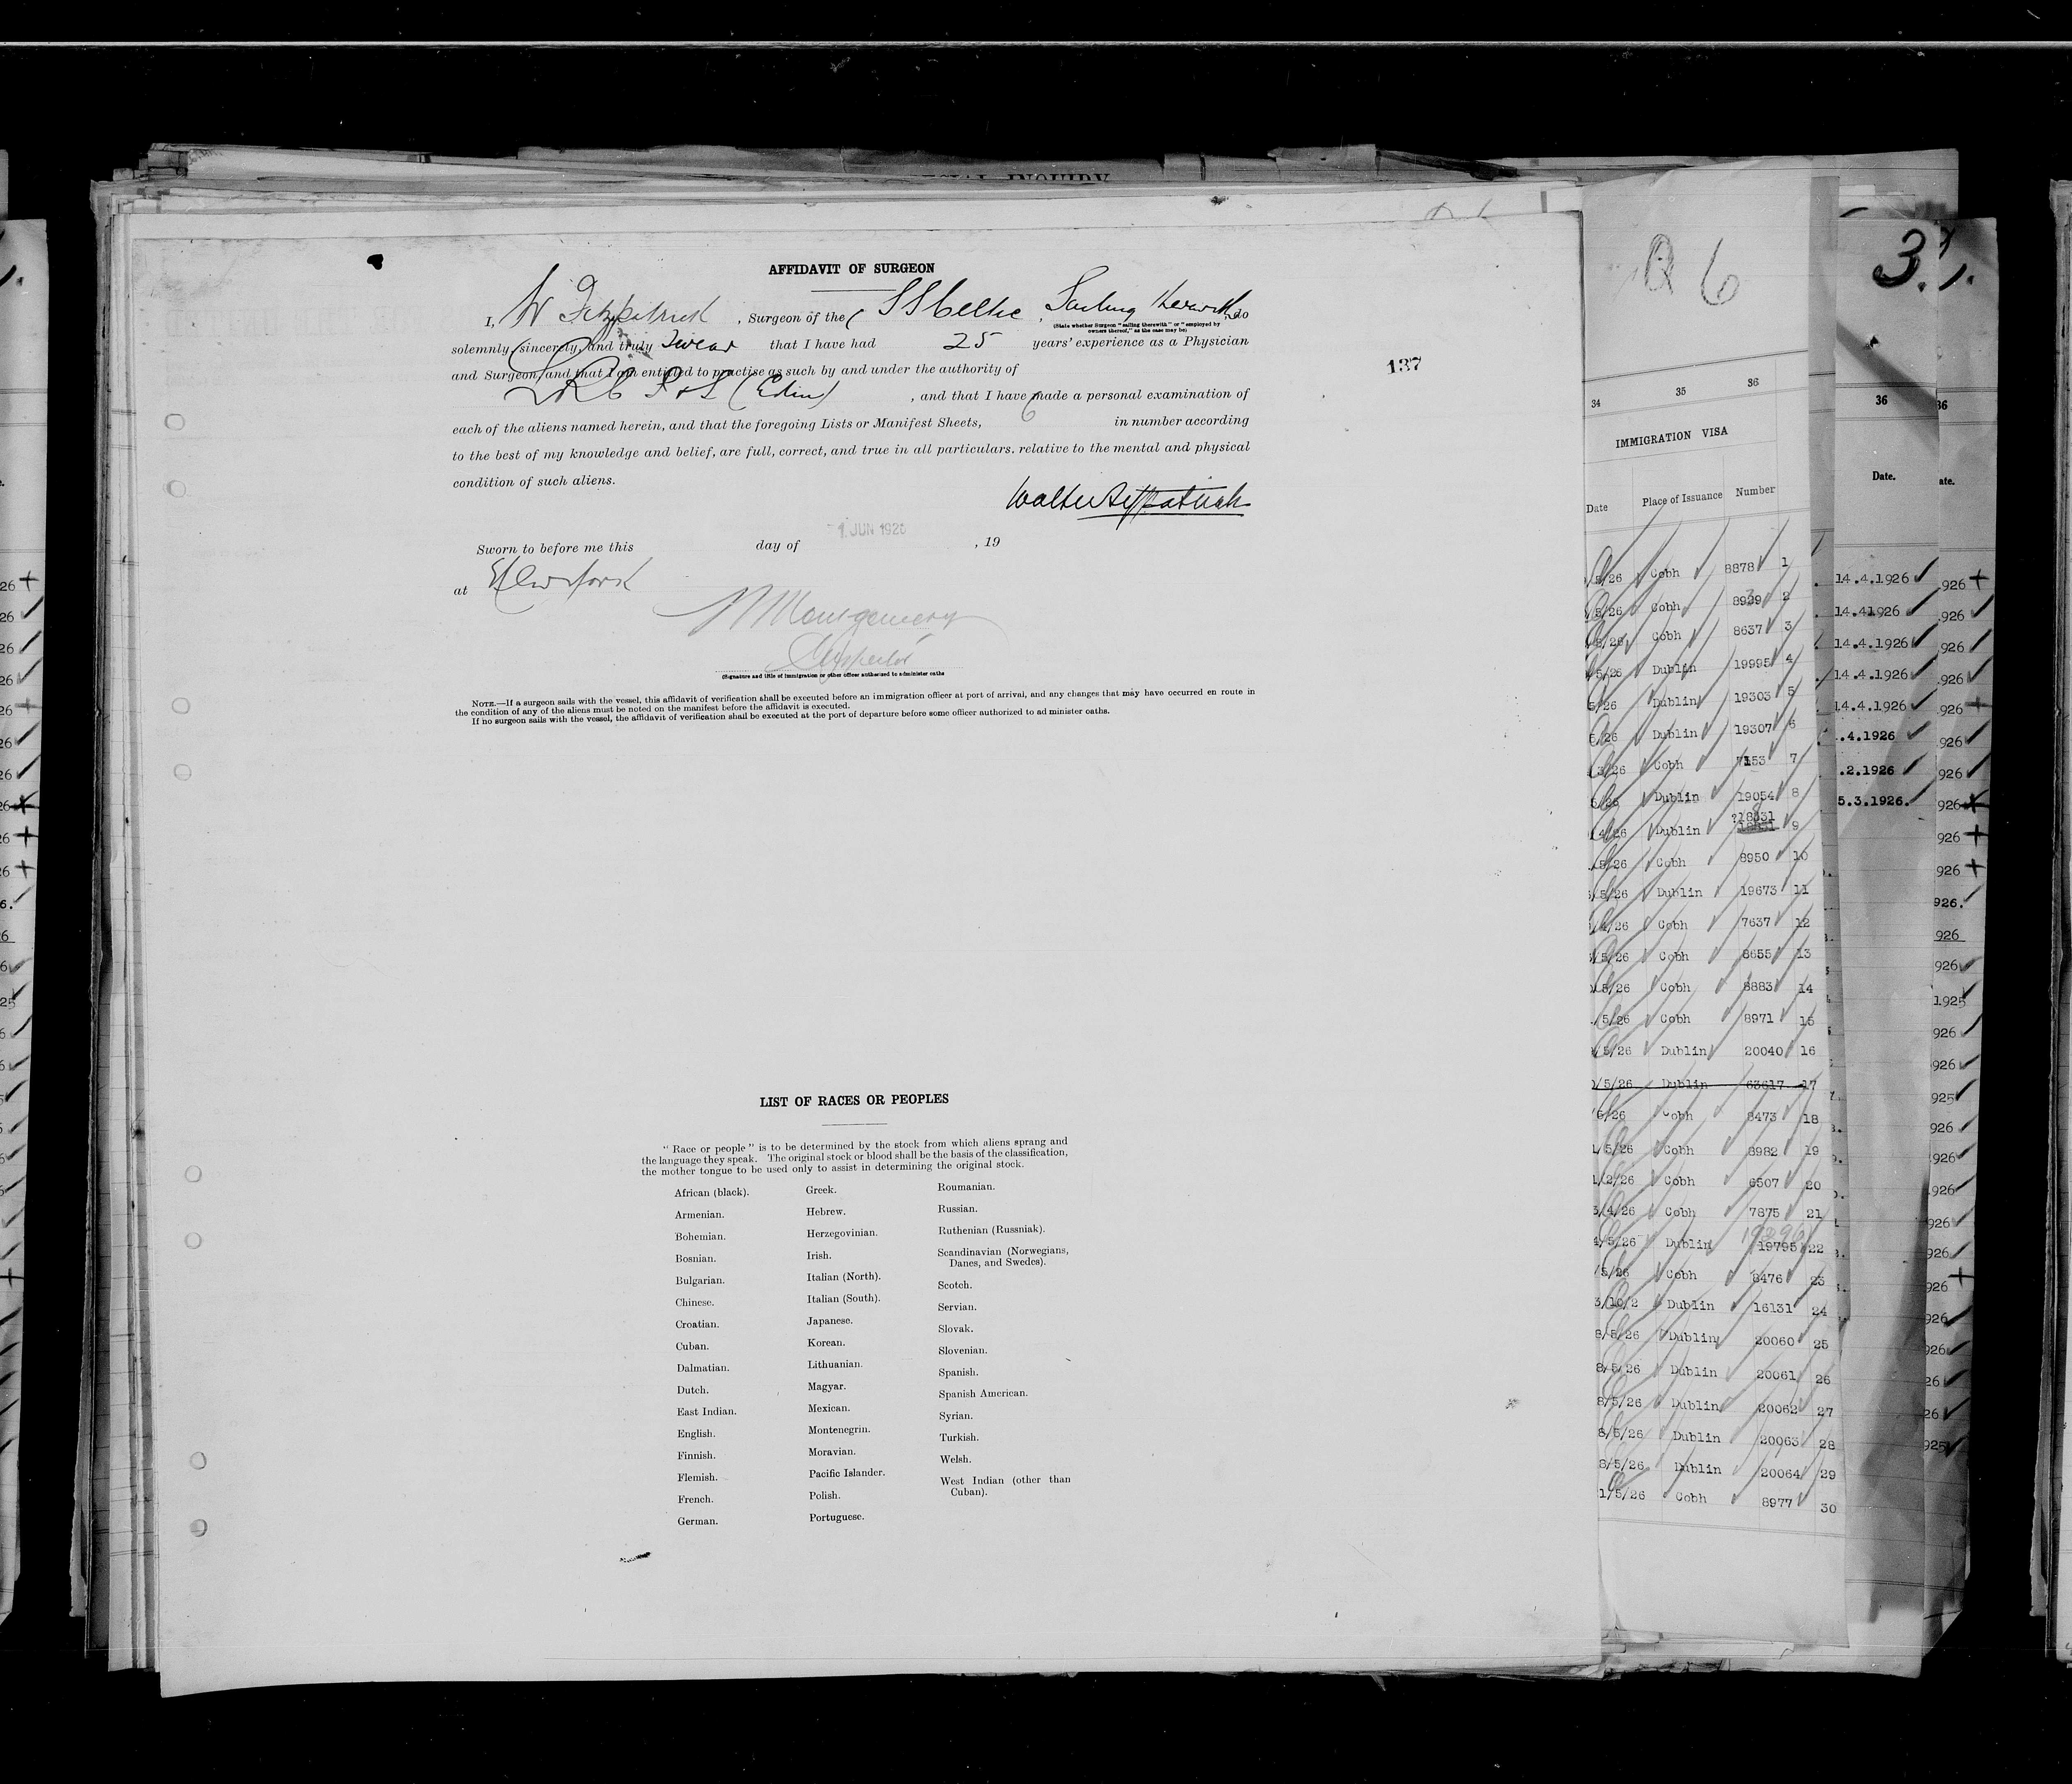 AFFIDAVIT OF SURGEON
I, W Fitzpatrick, Surgeon of the SS Celtic, Sailing therewith, do
(State whether Surgeon "sailing therewith" or "employed by
owners thereof," as the case may be)
solemnly, sincerely, and truly Swear that I have had 25 years' experience as a Physician
and Surgeon, and that I am entitled to practise as such by and under the authority of
LRCP&S (Edin), and that I have made a personal examination of
each of the aliens named herein, and that the foregoing Lists or Manifest Sheets, 6 in number according
to the best of my knowledge and belief, are full, correct, and true in all particulars. relative to the mental and physical
condition of such aliens.
Walter Fitzpatrick
1 JUN 1926
Sworn to before me this day of , 19
at
Montgomery
Inspector
(Signature and title of immigration or other officer authorized to administer oaths
NOTE.—If a surgeon sails with the vessel, this affidavit of verification shall be executed before an immigration officer at port of arrival, and any changes that may have occurred en route in
the condition of any of the aliens must be noted on the manifest before the affidavit is executed.
If no surgeon sails with the vessel, the affidavit of verification shall be executed at the port of departure before some officer authorized to administer oaths.
137
LIST OF RACES OR PEOPLES
"Race or people" is to be determined by the stock from which aliens sprang and
the language they speak. The original stock or blood shall be the basis of the classification,
the mother tongue to be used only to assist in determining the original stock.
African (black).
Armenian.
Bohemian.
Bosnian.
Bulgarian.
Chinese.
Croatian.
Cuban.
Dalmatian.
Dutch.
East Indian.
English.
Finnish.
Flemish.
French.
German.
Greek.
Hebrew.
Herzegovinian.
Irish.
Italian (North).
Italian (South).
Japanese.
Korean.
Lithuanian.
Magyar.
Mexican.
Montenegrin.
Moravian.
Pacific Islander.
Polish.
Portuguese.
Roumanian.
Russian.
Ruthenian (Russniak).
Scandinavian (Norwegians,
Danes, and Swedes).
Scotch.
Servian.
Slovak.
Slovenian.
Spanish.
Spanish American.
Syrian.
Turkish.
Welsh.
West Indian (other than
Cuban).
6
34 35 36
IMMIGRATION VISA
Date Place of Issuance Number
/5/26 Cobh 8878 1
5/26 Cobh 2
Cobh 8637 3
5/26 Dublin 19995 4
5/26 Dublin 19303 5
5/26 Dublin 19307 6
3/26 Cobh 7153 7
5/26 Dublin 19054 8
4/26 Dublin 18831 9
/5/26 Cobh 8950 10
/5/26 Dublin 19673 11
/4/26 Cobh 7637 12
/5/26 Cobh 8655 13
/5/26 Cobh 8883 14
/5/26 Cobh 8971 15
/5/26 Dublin 20040 16
/5/26 Dublin 63617 17
/5/26 Cobh 8473 18
1/5/26 Cobh 8982 19
1/2/26 Cobh 6507 20
3/4/26 Cobh 7875 21
4/5/26 Dublin 19795 22
/5/26 Cobh 8476 23
3/10/2 Dublin 16131 24
8/5/26 Dublin 20060 25
8/5/26 Dublin 20061 26
8/5/26 Dublin 20062 27
8/5/26 Dublin 20063 28
8/5/26 Dublin 20064 29
1/5/26 Cobh 8977 30
3.
36
Date.
14.4.1926
14.41926
14.4.1926
14.4.1926
14.4.1926
.4.1926
.2.1926
5.3.1926.
36
ate.
926
926
926
926
926
926
926
926
926
926
926.
926
926
1925
926
926
925
926
926
926
926
926
926
926
926
26
26
925